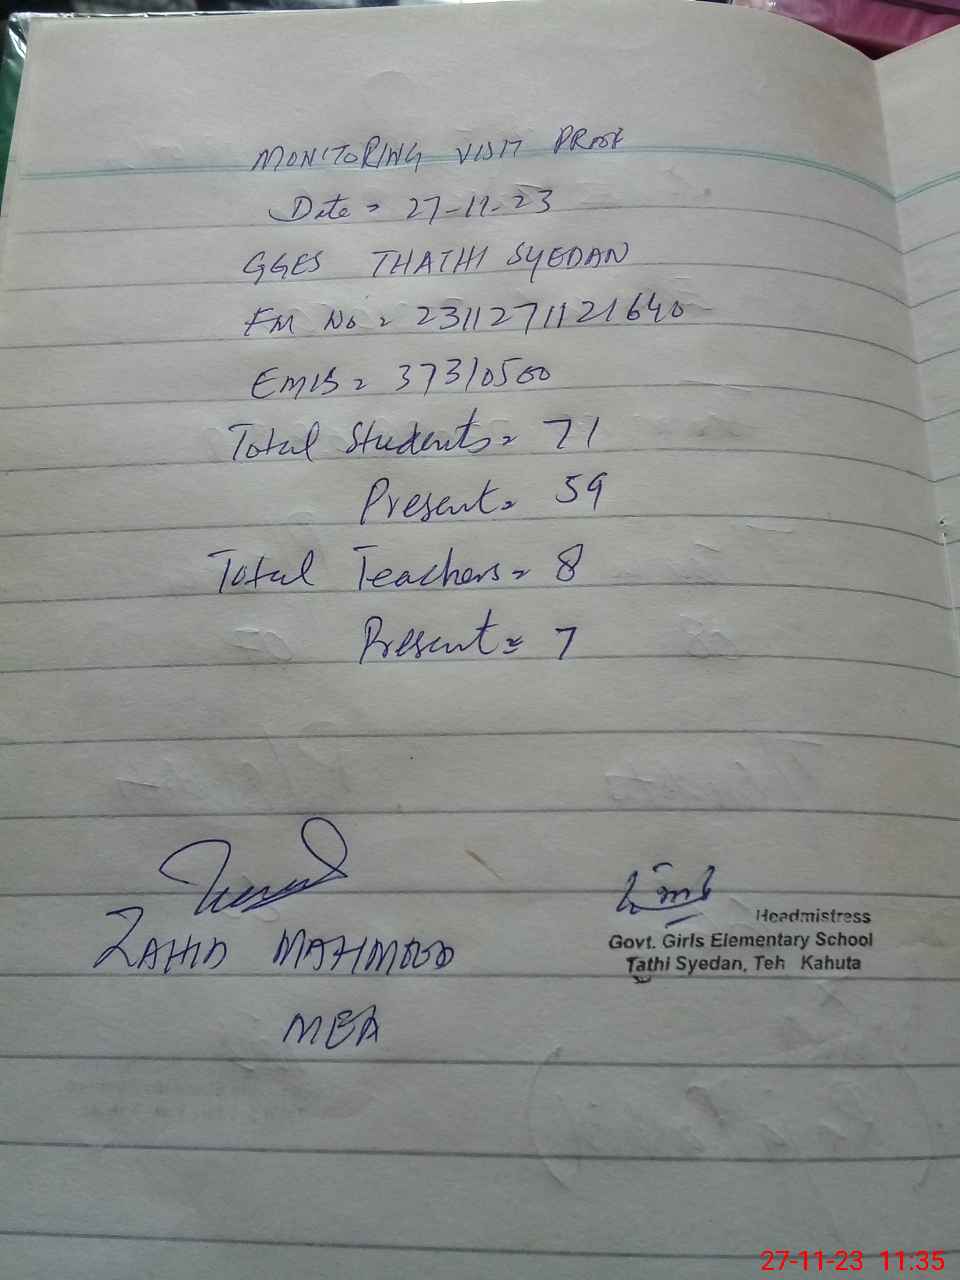 MONITORING VISIT PROOF
Date = 27-11-23
GGES THATHI SYEDAN
FM No = 2311271121640
EMIS = 37310500
Total Students = 71
Present = 59
Total Teachers = 8
Present = 7
ZAHID MAHMOOD
MEA
Headmistress
Govt. Girls Elementary School
Tathi Syedan, Teh Kahuta
27-11-23 11:35